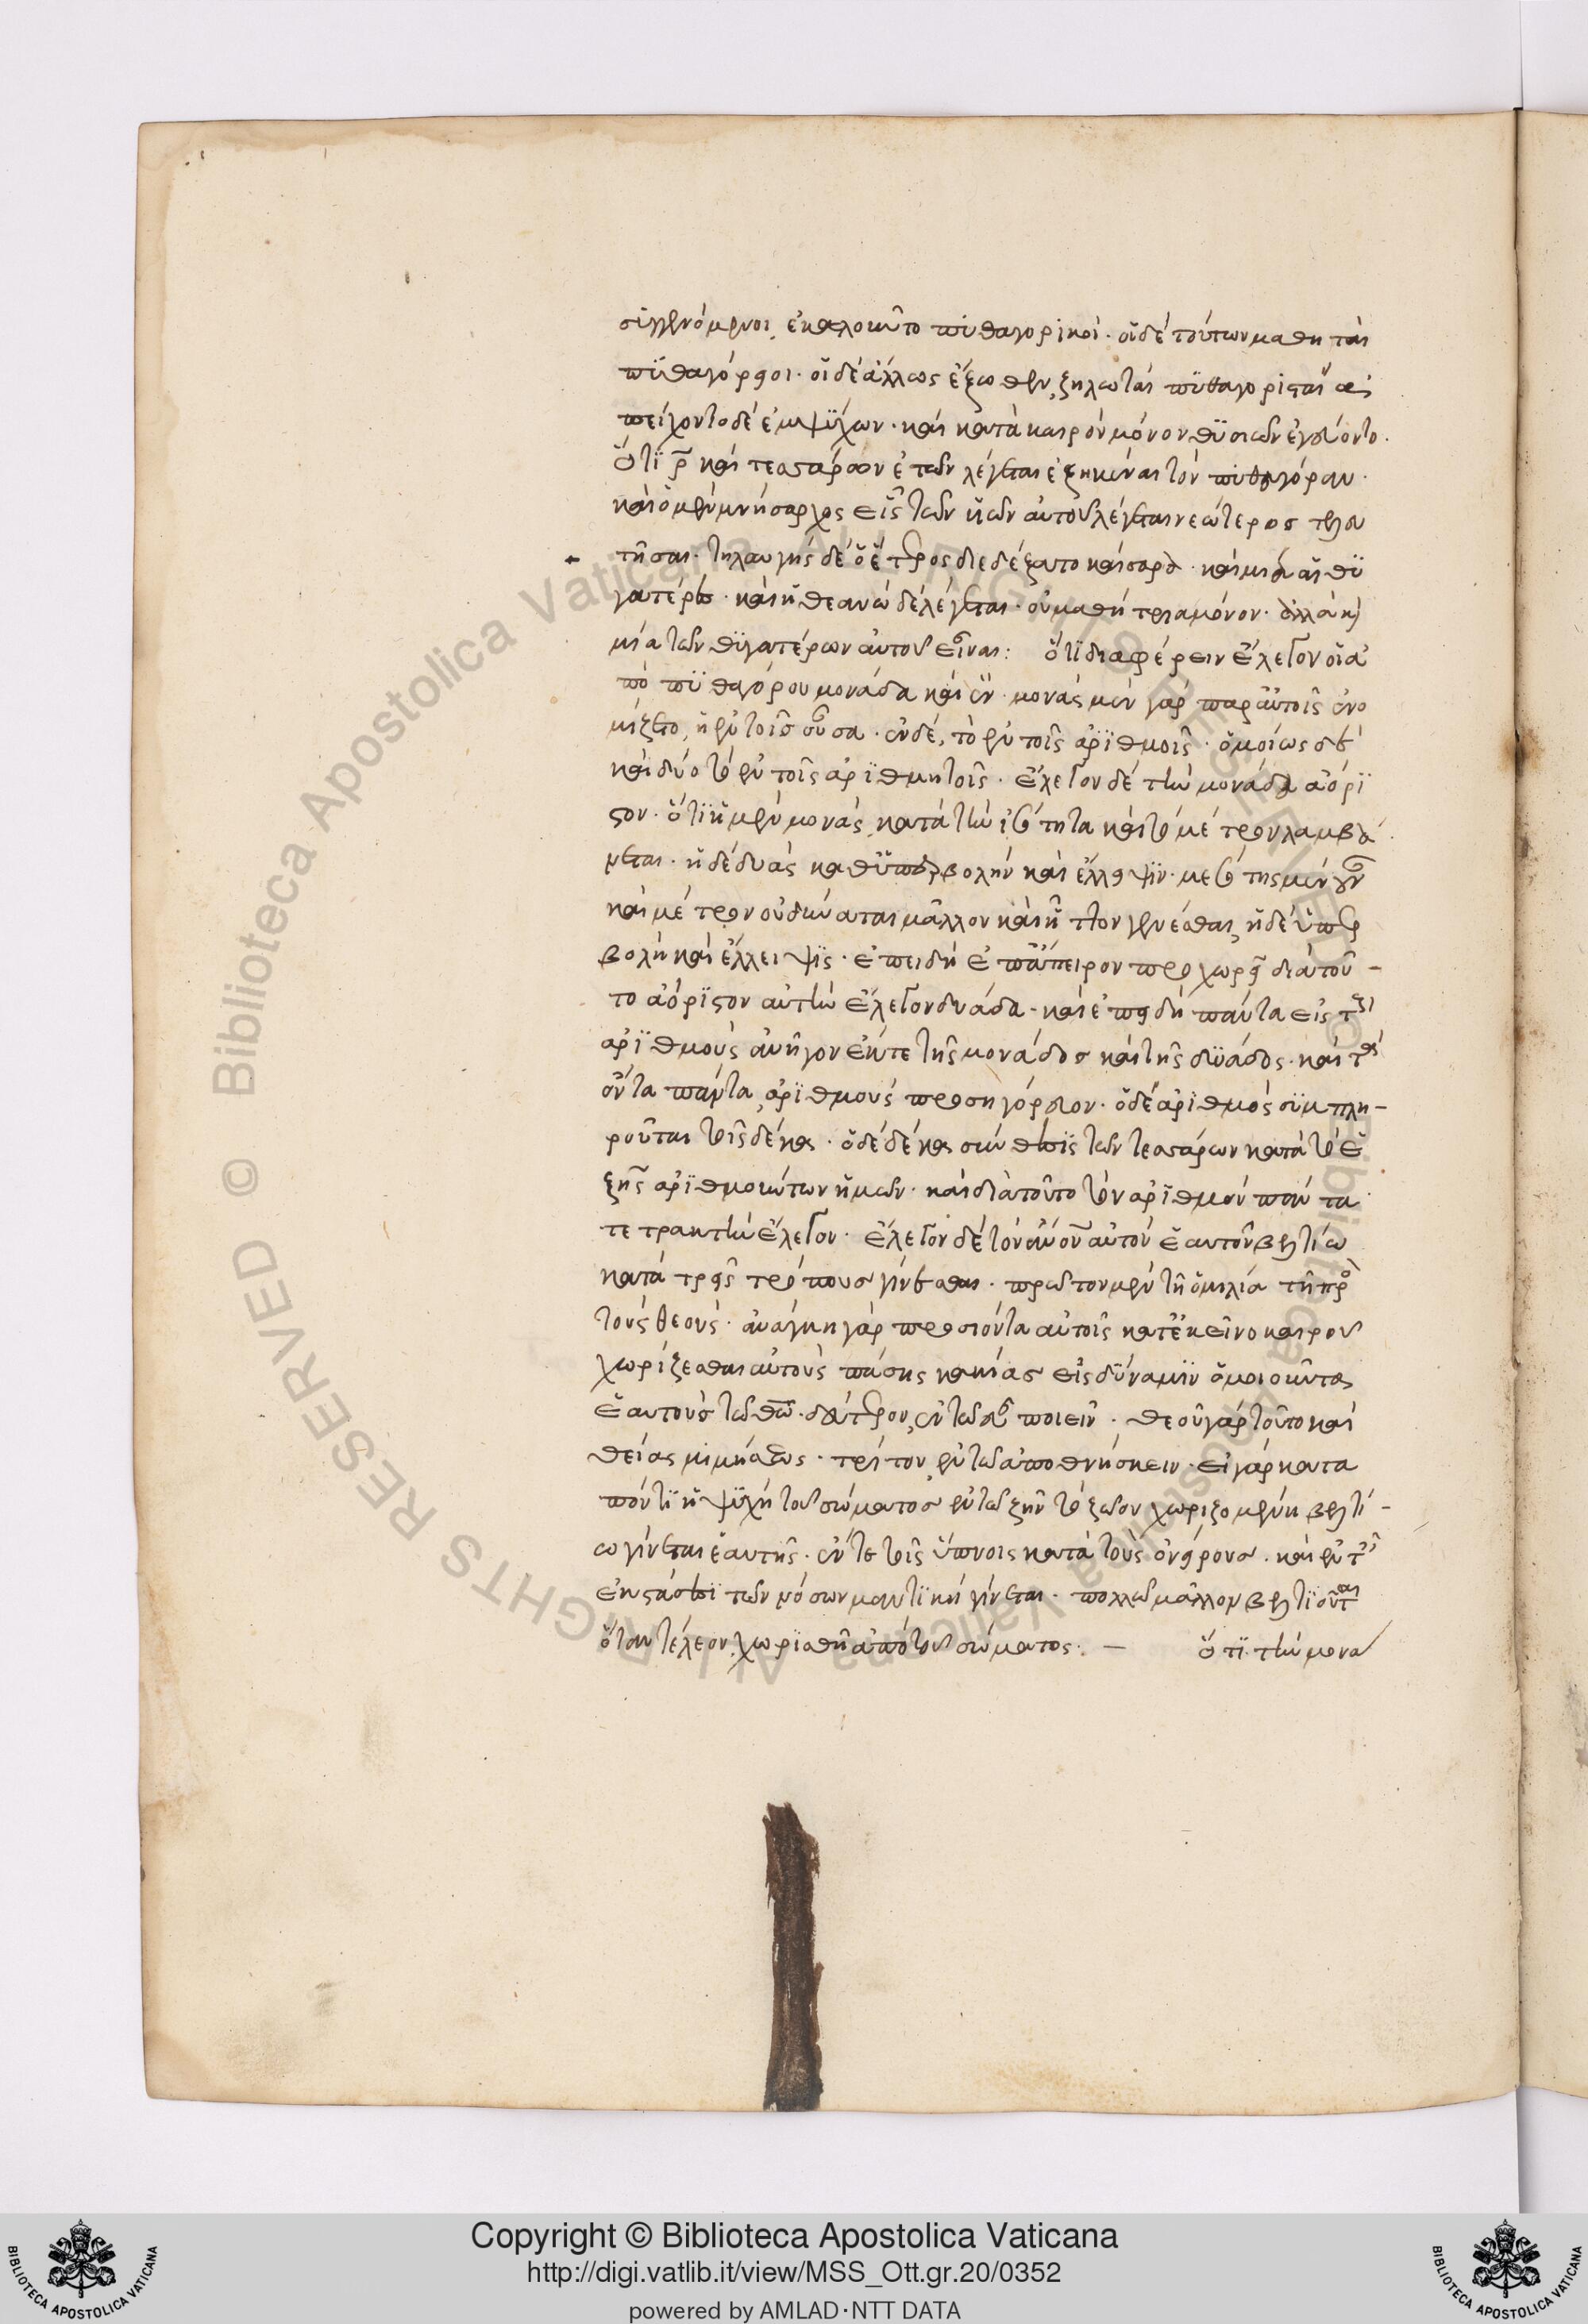 συγγενόμενοι, ἐκαλοῦντο πυθαγορικοί· οἱ δὲ τούτων μαθηταὶ
πυθαγόρειοι· οἱ δὲ ἄλλως ἔξωθεν ζηλωταὶ πυθαγορισταί ἀ
πείχοντο δὲ ἐμψύχων· καὶ κατὰ καιρὸν μόνον θυσιῶν ἐγεύοντο·
ὅτι ρ καὶ τεσσάρων ἐτῶν λέγεται ἐζηκέναι τὸν πυθαγόραν·
καὶ ὁ μὲν μνήσαρχος εἷς τῶν υἱῶν αὐτοῦ λέγεται νεώτερος τελευ
τῆσαι· τηλαυγὴς δὲ ὁ ἕτερος διεδέξατο καὶ σαρα· καὶ μυῖα αἱ θυ
γατέρες· καὶ ἡ θεανὼ δὲ λέγεται· οὐ μαθήτρια μόνον· ἀλλὰ κ
μία τῶν θυγατέρων αὐτοῦ εἶναι: ὅτι διαφέρειν ἔλεγον οἱ ἀ
πὸ πυθαγόρου μονάδα καὶ ἕν· μονὰς μὲν γὰρ παρ αὐτοῖς ἐνο
μίζετο, ἡ ἐν τοῖς οὖσα· ἓν δὲ, τὸ ἐν τοῖς ἀριθμοῖς· ὁμοίως δὲ
καὶ δύο τὸ ἐν τοῖς ἀριθμητοῖς· ἔλεγον δὲ τὴν μονάδα ἀόρι
στον· ὅτι ἡ μὲν μονὰς κατὰ τὴν ἰσότητα καὶ τὸ μέτρον λαμβά
νεται· ἡ δὲ δυὰς καθ ὑπερβολὴν καὶ ἔλλειψιν· μεσότης μὲν οὖν
καὶ μέτρον οὐ δύναται μᾶλλον καὶ ἧττον γενέσθαι, ἡ δὲ ὑπερ
βολὴ καὶ ἔλλειψις· ἐπειδὴ ἐπ ἄπειρον προχωρεῖ διὰ τοῦ-
το ἀόριστον αὐτὴν ἔλεγον δυάδα· καὶ ἐπειδὴ πάντα εἰς τοὺς
ἀριθμοὺς ἀνῆγον ἔκ τε τῆς μονάδος καὶ τῆς δυάδος· καὶ τὰ
ὄντα πάντα, ἀριθμοὺς προσηγόρευον· ὁ δὲ ἀριθμὸς συμπλη-
ροῦται τοῖς δέκα· ὁ δὲ δέκα σύνθεσις τῶν τεσσάρων κατὰ τὸ ἑ
ξῆς ἀριθμούντων ἡμῶν· καὶ διὰ τοῦτο τὸν ἀριθμὸν πάντα
τετρακτὺν ἔλεγον· ἔλεγον δὲ τὸν ἄνον αὐτὸν ἑαυτοῦ βελτίω
κατὰ τρεῖς τρόπους γίνεσθαι· πρῶτον μὲν τῇ ὁμιλίᾳ τῇ πρὸς
τοὺς θεούς· ἀνάγκη γὰρ προσιόντα αὐτοῖς κατ ἐκεῖνο καιροῦ
χωρίζεσθαι αὐτοὺς πάσης κακίας εἰς δύναμιν ὁμοιοῦντας
ἑαυτοὺς τῷ θῶ· δεύτερον, ἐν τῷ εὖ ποιεῖν· θεοῦ γὰρ τοῦτο καὶ
θείας μιμήσεως· τρίτον, ἐν τῷ ἀποθνήσκειν· εἰ γὰρ κατα
ποντι ἡ ψυχὴ τοῦ σώματος ἐν τῷ ζῆν τὸ ζῶον χωριζομένη βελτί-
ω γίνεται ἑαυτῆς· ἔν τε τοῖς ὕπνοις κατὰ τοὺς ὀνείρους· καὶ ἐν ταῖς
ἐκστάσεσι τῶν νόσων μαντικὴ γίνεται· πολλῷ μᾶλλον βελτιοῦται
ὅταν τέλεον χωρισθῇ ἀπὸ τοῦ σώματος: — ὅτι τὴν μονα
Copyright © Biblioteca Apostolica Vaticana
http://digi.vatlib.it/view/MSS_Ott.gr.20/0352
powered by AMLAD·NTT DATA